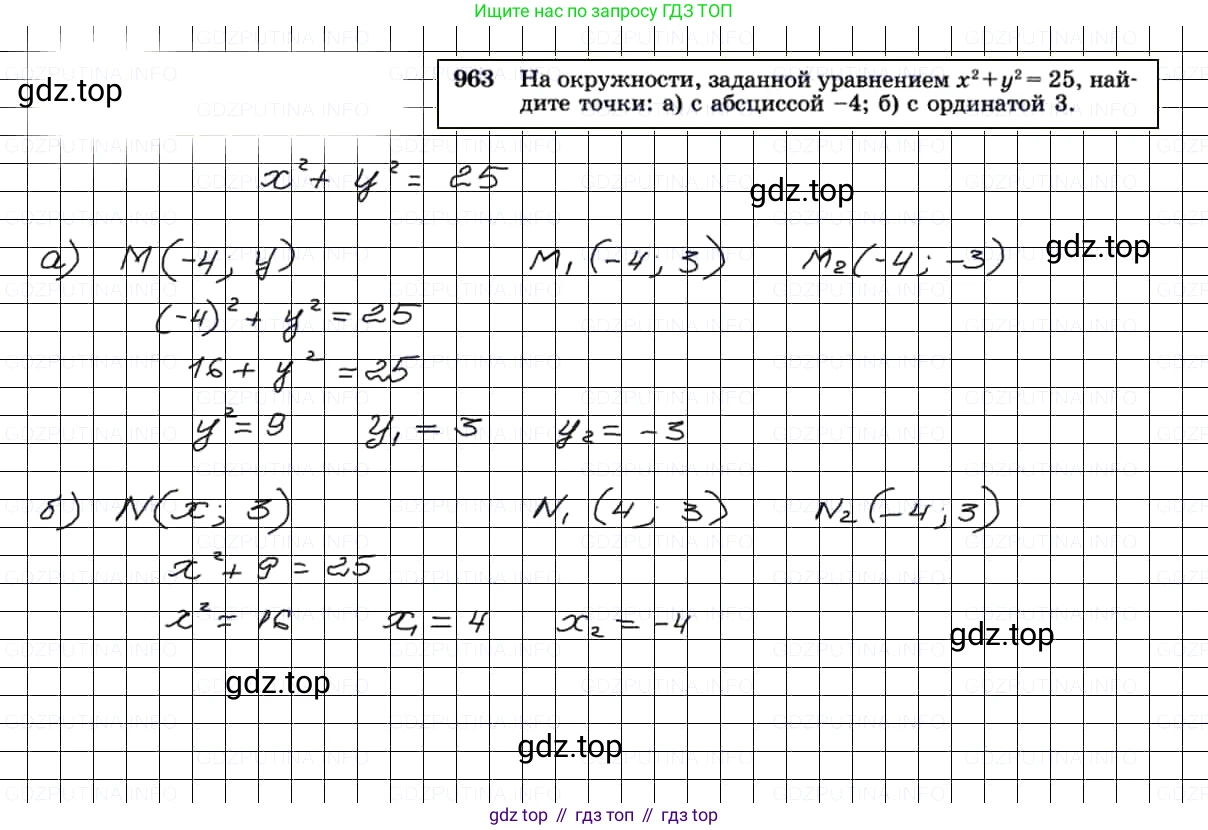 Ищите нас по запросу ГДЗ ТОП
963 На окружности, заданной уравнением x²+y²= 25, най-
дите точки: а) с абсциссой −4; б) с ординатой 3.
gdz.top
x² + y² = 25
gdz.top
а) M(-4; y) M₁(-4; 3) M₂(-4; -3)
gdz.top
(-4)² + y² = 25
16 + y² = 25
y² = 9 y₁ = 3 y₂ = -3
б) N(x; 3) N₁(4; 3) N₂(-4; 3)
x² + 9 = 25
x² = 16 x₁ = 4 x₂ = -4
gdz.top
gdz.top
gdz.top
gdz.top // гдз топ // гдз.top